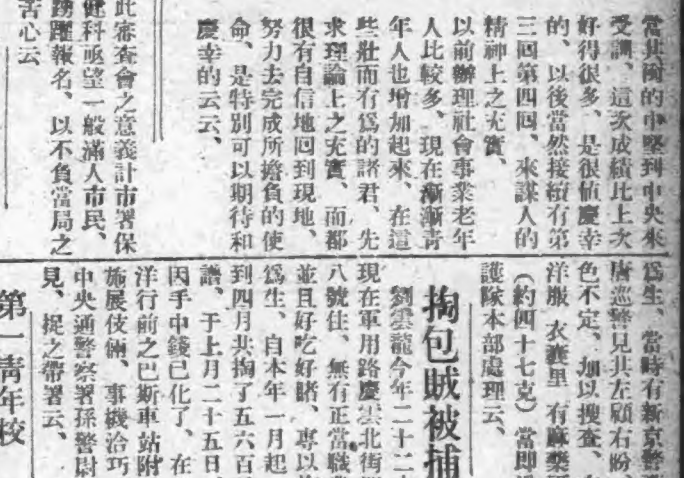 當其衝的中堅到中央來
受訓、這次成績比上次
好得很多、是很值慶幸
的、以後當然接續有第
三回第四回、來謀人的
精神上之充實、
以前辦理社會事業老年
人比較多、現在漸漸青
年人也增加起來、在這
些壯而有爲的諸君、先
求理論上之充實、而都
很有自信地回到現地、
努力去完成所擔負的使
命、是特別可以期待和
慶幸的云云、
此審查會之意義計市署保
健科亟望一般滿人市民、
踴躍報名、以不負當局之
苦心云
爲生、當時有新京警
唐巡警見其左顧右盼、
色不定、加以搜查、
洋服衣裡、有麻藥
(約四十七克)當即
護隊本部處理云、
掏包賊被捕
劉雲龍今年二十二
現在軍用路慶雲北街
八號住、無有正當職
並且好吃好賭、專以
爲生、自本年一月起
到四月共掏了五六百
譜、于上月二十五日
因手中錢已化了、在
洋行前之巴斯車站附
施展伎倆、事機洽巧
中央通警察署孫警尉
見、捉之帶署云、
第一靑年校